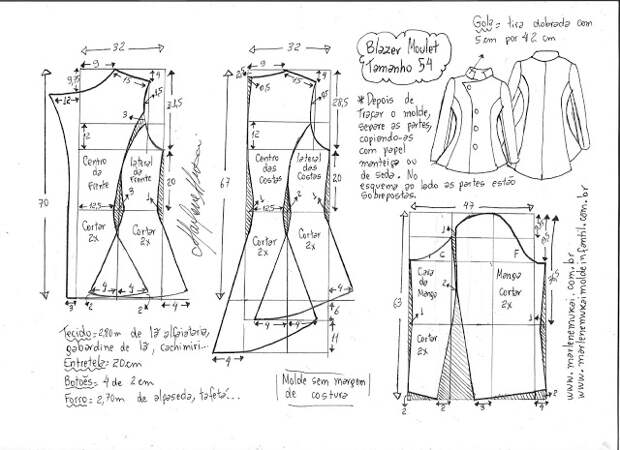 Blazer Moulet
Tamanho 54
Gola = tira dobrada com
5 cm por 42 cm
* Depois de
traçar o molde,
separe as partes,
copiando-as
com papel
manteiga ou
de seda. No
esquema ao lado as partes estão
sobrepostas.
32
9
15
9,75
12
4
1,5
31,5
3
12
Centro da Frente
lateral da Frente
20
70
12,5
3
2
Cortar 2x
Cortar 2x
4
4
4
3
2
2
32
2,5
9
15
0,5
4
28,5
12
Centro das Costas
laterais das Costas
20
67
12,5
Cortar 2x
Cortar 2x
4
4
4
6
11
4
47
C
F
63
Capa da Manga
Manga
Cortar 2x
Cortar 2x
2
2
3
www.marlenemukai.com.br
www.marlenemukaimoldeinfantil.com.br
Tecido = 2,80m de lã alfaiataria,
gabardine de lã, cachimiri...
Entretela = 20cm
Botões = 4 de 2 cm
Forro = 2,70m de alpaseda, tafetá...
Molde sem margem
de costura